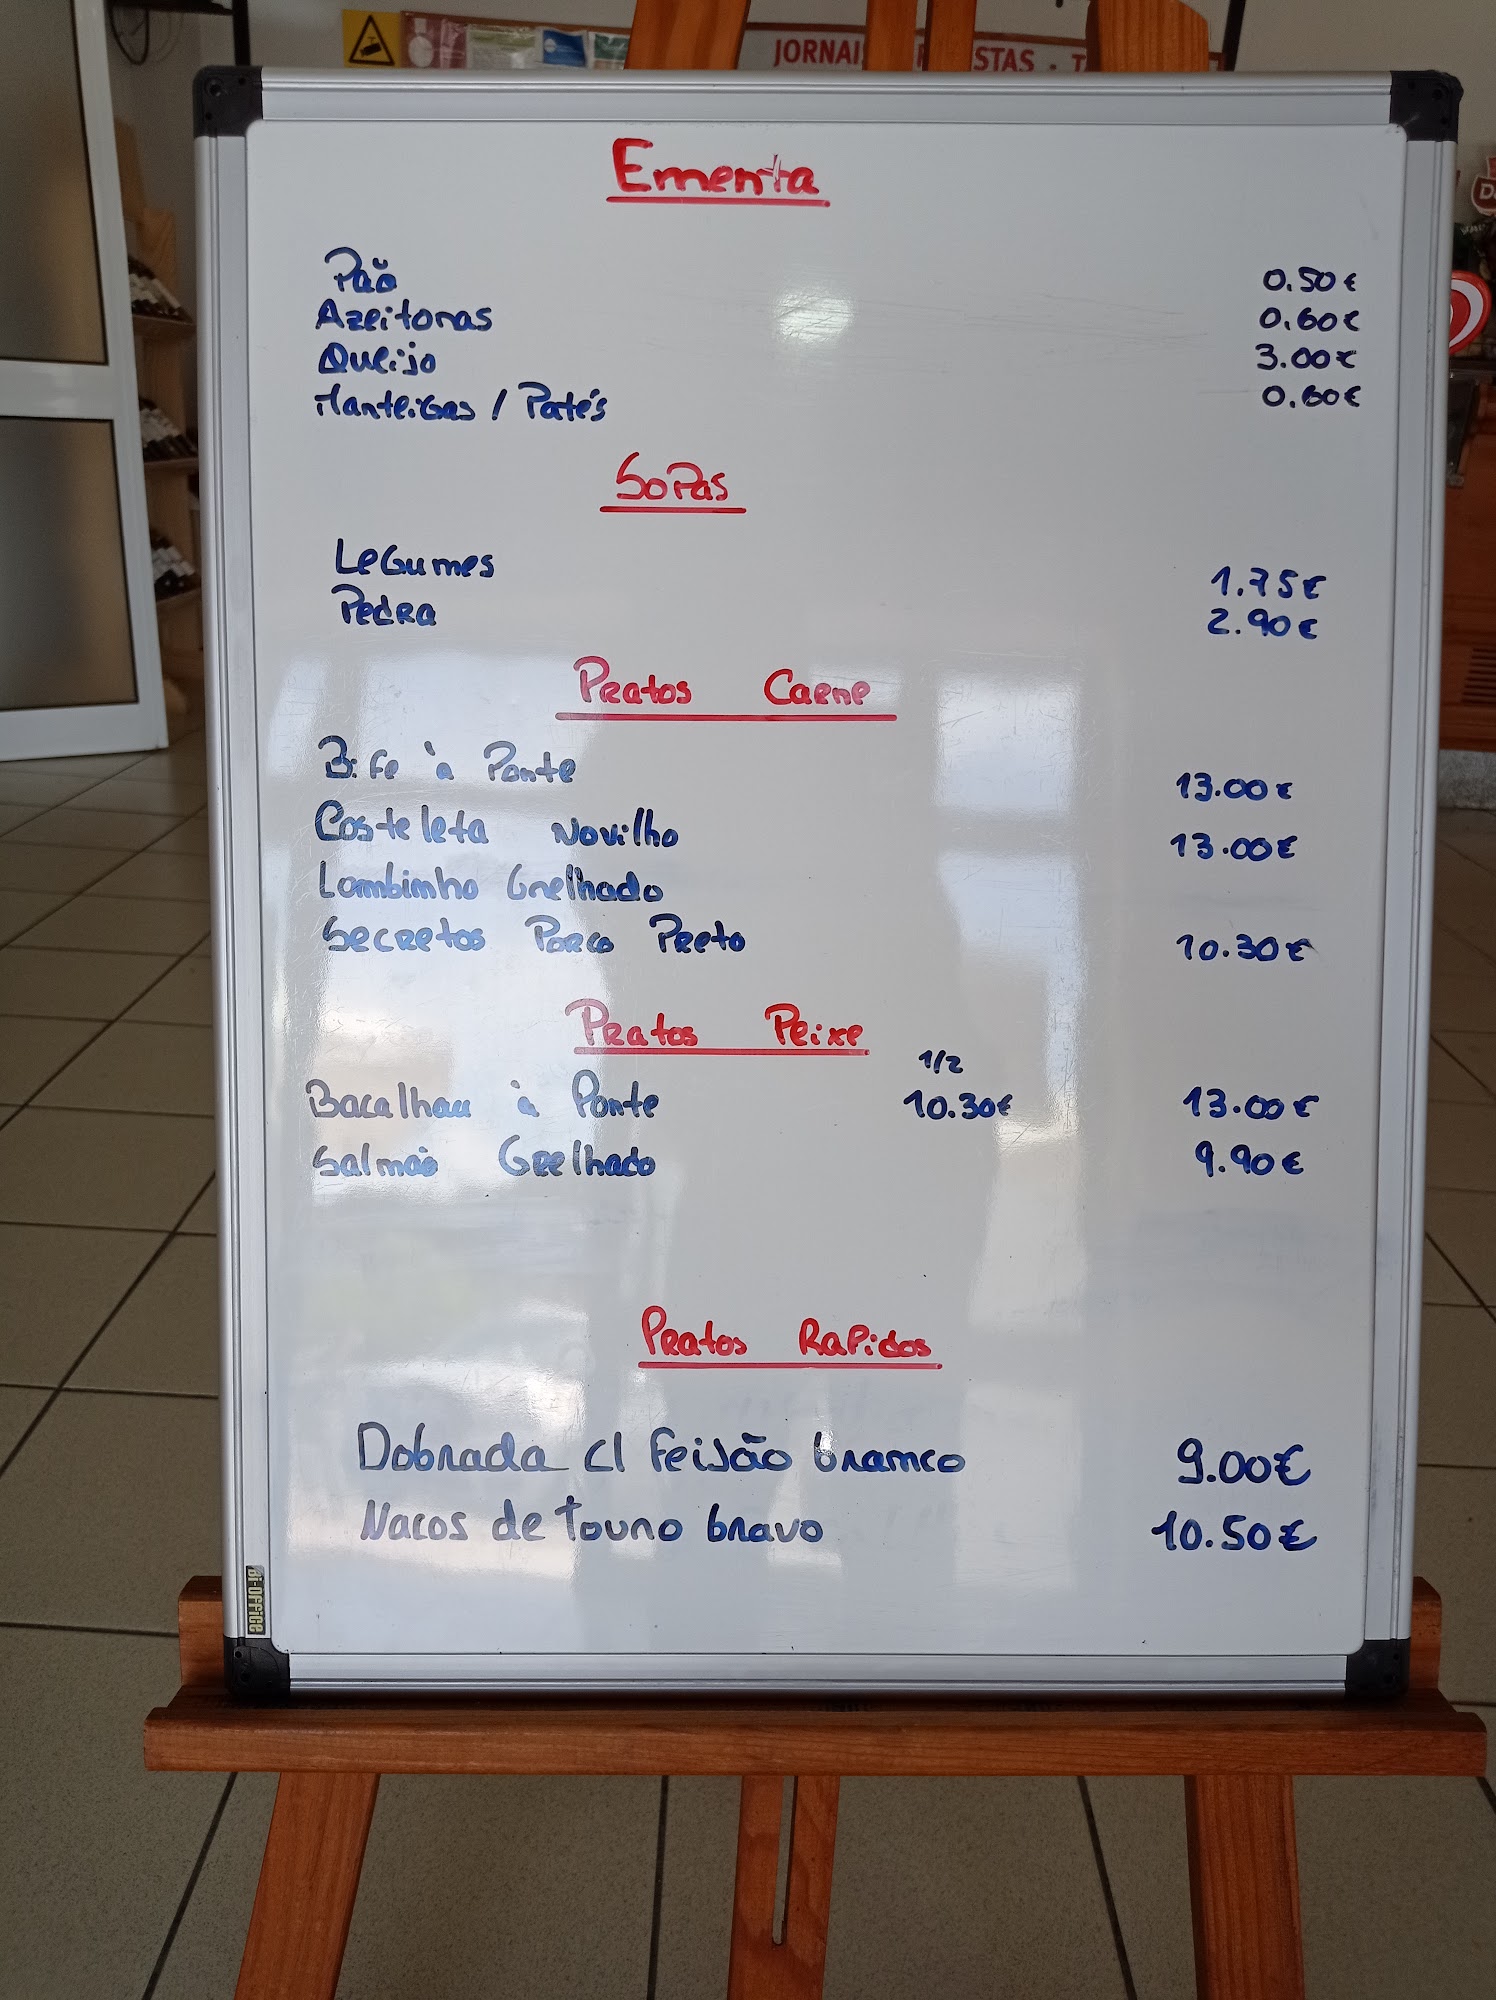 JORNAI
STAS - T
Ementa
Pão 0.50€
Azeitonas 0.60€
Queijo 3.00€
Manteigas / Patés 0.60€
Sopas
Legumes 1.75€
Pedra 2.90€
Pratos Carne
Bife à Ponte 13.00€
Costeleta Novilho 13.00€
Lombinho Grelhado
Secretos Porco Preto 10.30€
Pratos Peixe
1/2
Bacalhau à Ponte 10.30€ 13.00€
Salmão Grelhado 9.90€
Pratos Rapidos
Dobrada c/ Feijão branco 9.00€
Nacos de Touro bravo 10.50€
Bi-OFFICE